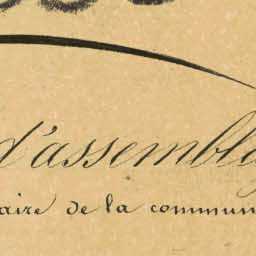 d'assembla
aire de la commun